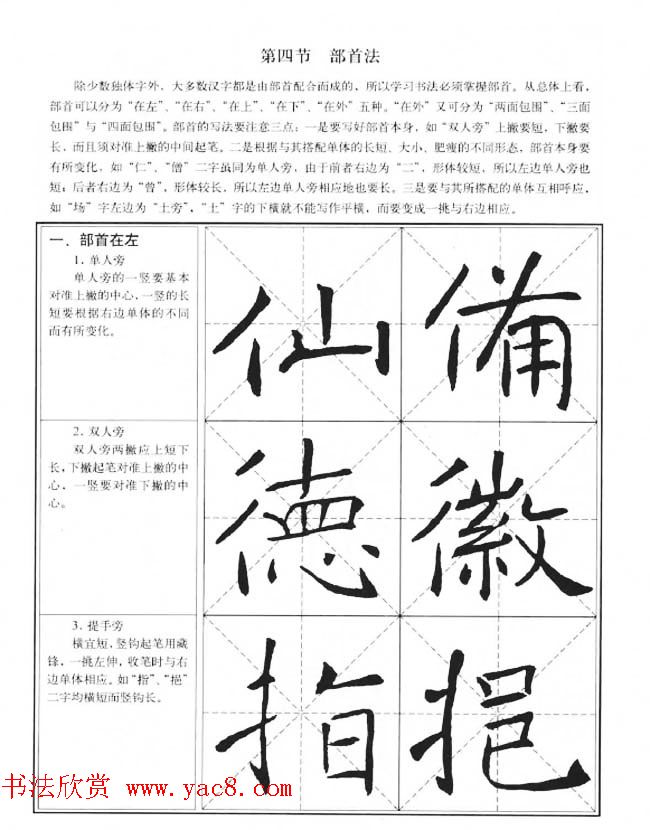 第四节 部首法
除少数独体字外，大多数汉字都是由部首配合而成的，所以学习书法必须掌握部首。从总体上看，
部首可以分为“在左”、“在右”、“在上”、“在下”、“在外”五种。“在外”又可分为“两面包围”、“三面
包围”与“四面包围”。部首的写法要注意三点：一是要写好部首本身，如“双人旁”上撇要短，下撇要
长，而且须对准上撇的中间起笔。二是根据与其搭配单体的长短、大小、肥瘦的不同形态，部首本身要
有所变化，如“仁”、“僧”二字虽同为单人旁，由于前者右边为“二”，形体较短，所以左边单人旁也
短；后者右边为“曾”，形体较长，所以左边单人旁相应地也要长。三是要与其所搭配的单体互相呼应，
如“场”字左边为“土旁”，“土”字的下横就不能写作平横，而要变成一挑与右边相应。
一．部首在左
1. 单人旁
单人旁的一竖要基本
对准上撇的中心，一竖的长
短要根据右边单体的不同
而有所变化。
仙 備
2. 双人旁
双人旁两撇应上短下
长，下撇起笔对准上撇的中
心，一竖要对准下撇的中
心。
德 徽
3. 提手旁
横宜短，竖钩起笔用藏
锋，一挑左伸，收笔时与右
边单体相应。如“指”、“挹”
二字均横短而竖钩长。
指 挹
书法欣赏 www.yac8.com